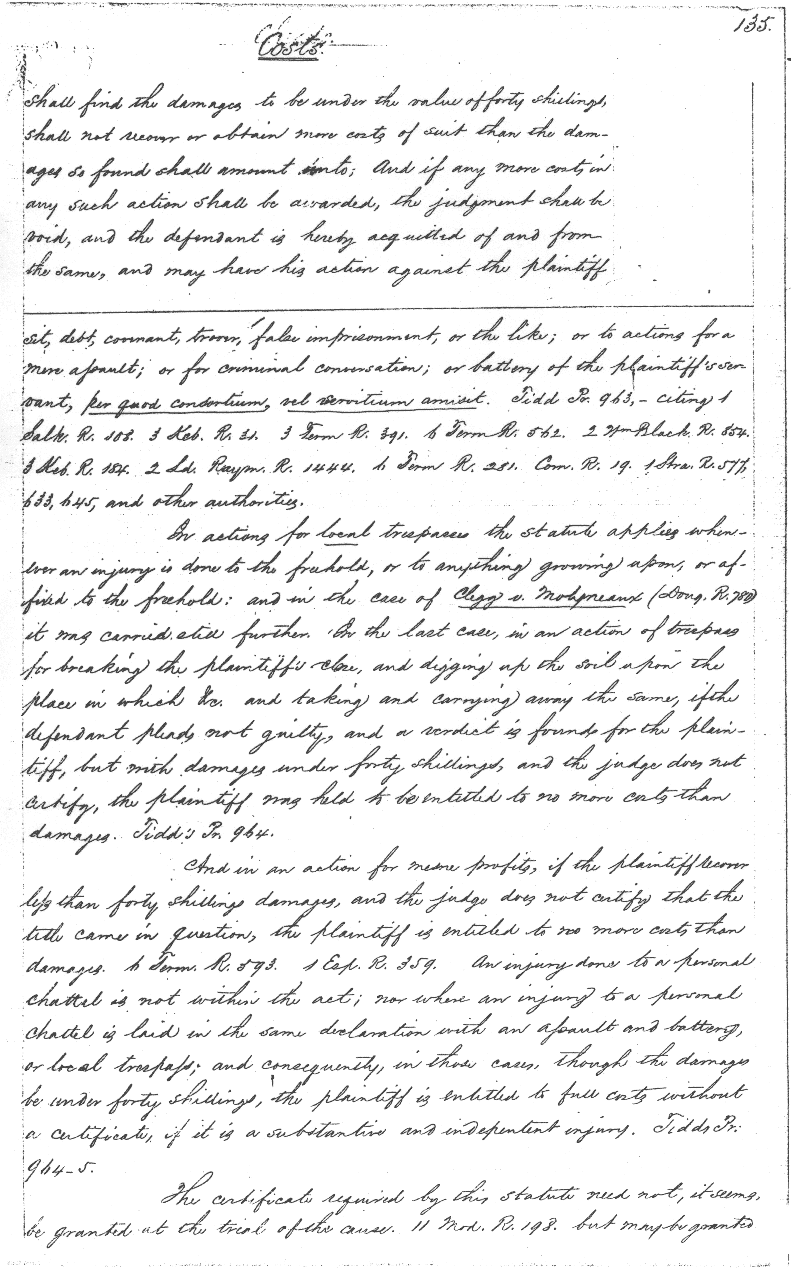 135.
Costs.
shall find the damages to be under the value of forty shillings,
shall not recover or obtain more costs of suit than the dam-
ages so found shall amount unto; And if any more costs in
any such action shall be awarded, the judgment shall be
void, and the defendant is hereby acquitted of and from
the same, and may have his action against the plaintiff
sit, debt, covenant, trover, false imprisonment, or the like; or to actions for a
mere assault; or for criminal conversation; or battery of the plaintiff's ser-
vant, per quod consortium, vel servitium amisit. Tidd Pr. 963,- citing 1
Salk. R. 208. 3 Keb. R. 31. 3 Term R. 391. 6 Term R. 562. 2 Wm Black. R. 854.
3 Keb. R. 184. 2 Ld. Raym. R. 1444. 6 Term R. 281. Com. R. 19. 1 Stra. R. 577,
633, 645, and other authorities.
In actions for local trespasses the statute applies when-
ever an injury is done to the freehold, or to anything growing upon, or af-
fixed to the freehold: and in the case of Clegg v. Molyneaux (Doug. R. 780)
it was carried still further. In the last case, in an action of trespass
for breaking the plaintiff's close, and digging up the soil upon the
place in which &c. and taking and carrying away the same, if the
defendant pleads not guilty, and a verdict is found for the plain-
tiff, but with damages under forty shillings, and the judge does not
certify, the plaintiff was held to be entitled to no more costs than
damages. Tidd's Pr. 964.
And in an action for mesne profits, if the plaintiff recover
less than forty shillings damages, and the judge does not certify that the
title came in question, the plaintiff is entitled to no more costs than
damages. 6 Term. R. 593. 1 Esp. R. 359. An injury done to a personal
chattel is not within the act; nor where an injury to a personal
chattel is laid in the same declaration with an assault and battery,
or local trespass; and consequently, in those cases, though the damages
be under forty shillings, the plaintiff is entitled to full costs without
a certificate, if it is a substantive and indepentent injury. Tidds Pr.
964-5.
The certificate required by this statute need not, it seems,
be granted at the trial of the cause. 11 Mod. R. 198. but may be granted